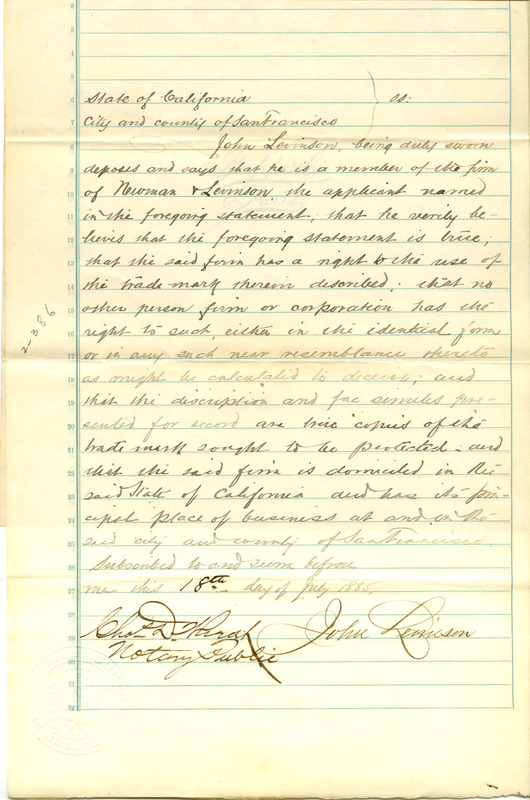 2
3
4
5
State of California } ss:
6
City and county of San Francisco
7
John Levinson, being duly sworn
8
deposes and says that he is a member of the firm
9
of Newman & Levinson the applicant named
10
in the foregoing statement; that he verily be-
11
lieves that the foregoing statement is true;
12
that the said firm has a right to the use of
13
the trade mark therein described; that no
14
other person firm or corporation has the
15
right to such, either in the identical form
16
or in any such near resemblance thereto
17
as might be calculated to deceive; and
18
that the discription and fac similes pre-
19
sented for record are true copies of the
20
trade mark sought to be protected - and
21
that the said firm is domiciled in the
22
said State of California and has its prin-
23
cipal place of business at and in the
24
said city and county of San Francisco.
25
Subscribed to and sworn before
26
me this 18th day of July 1885.
27
28
Chas. D. John Levinson
29
Notary Public
30
31
32
2-386